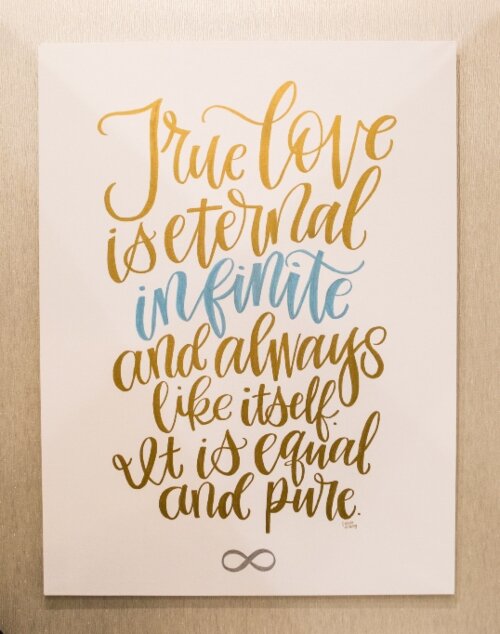 True love
is eternal
infinite
and always
like itself.
It is equal
and pure.